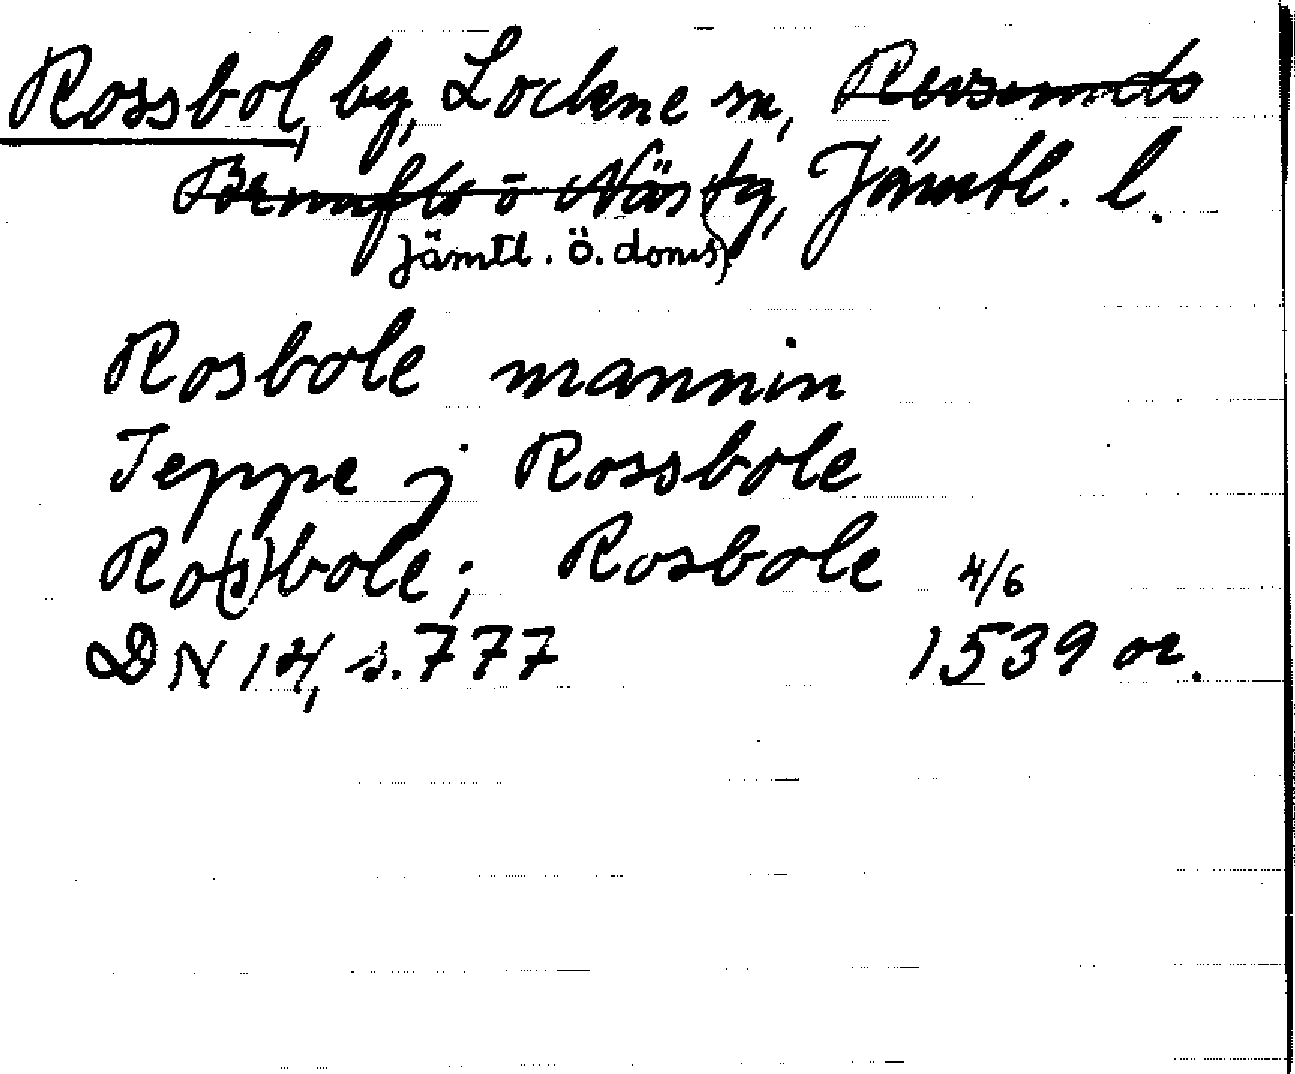 Rossbol, by, Lockne sn, Revsunds
Brunflo o Näs tg, Jämtl. l.
Jämtl. ö. doms
Rosbole mannin
Jeppe j Rossbole
Ro(s)bole; Rosbole 4/6
DN 14, s. 777 1539 or.